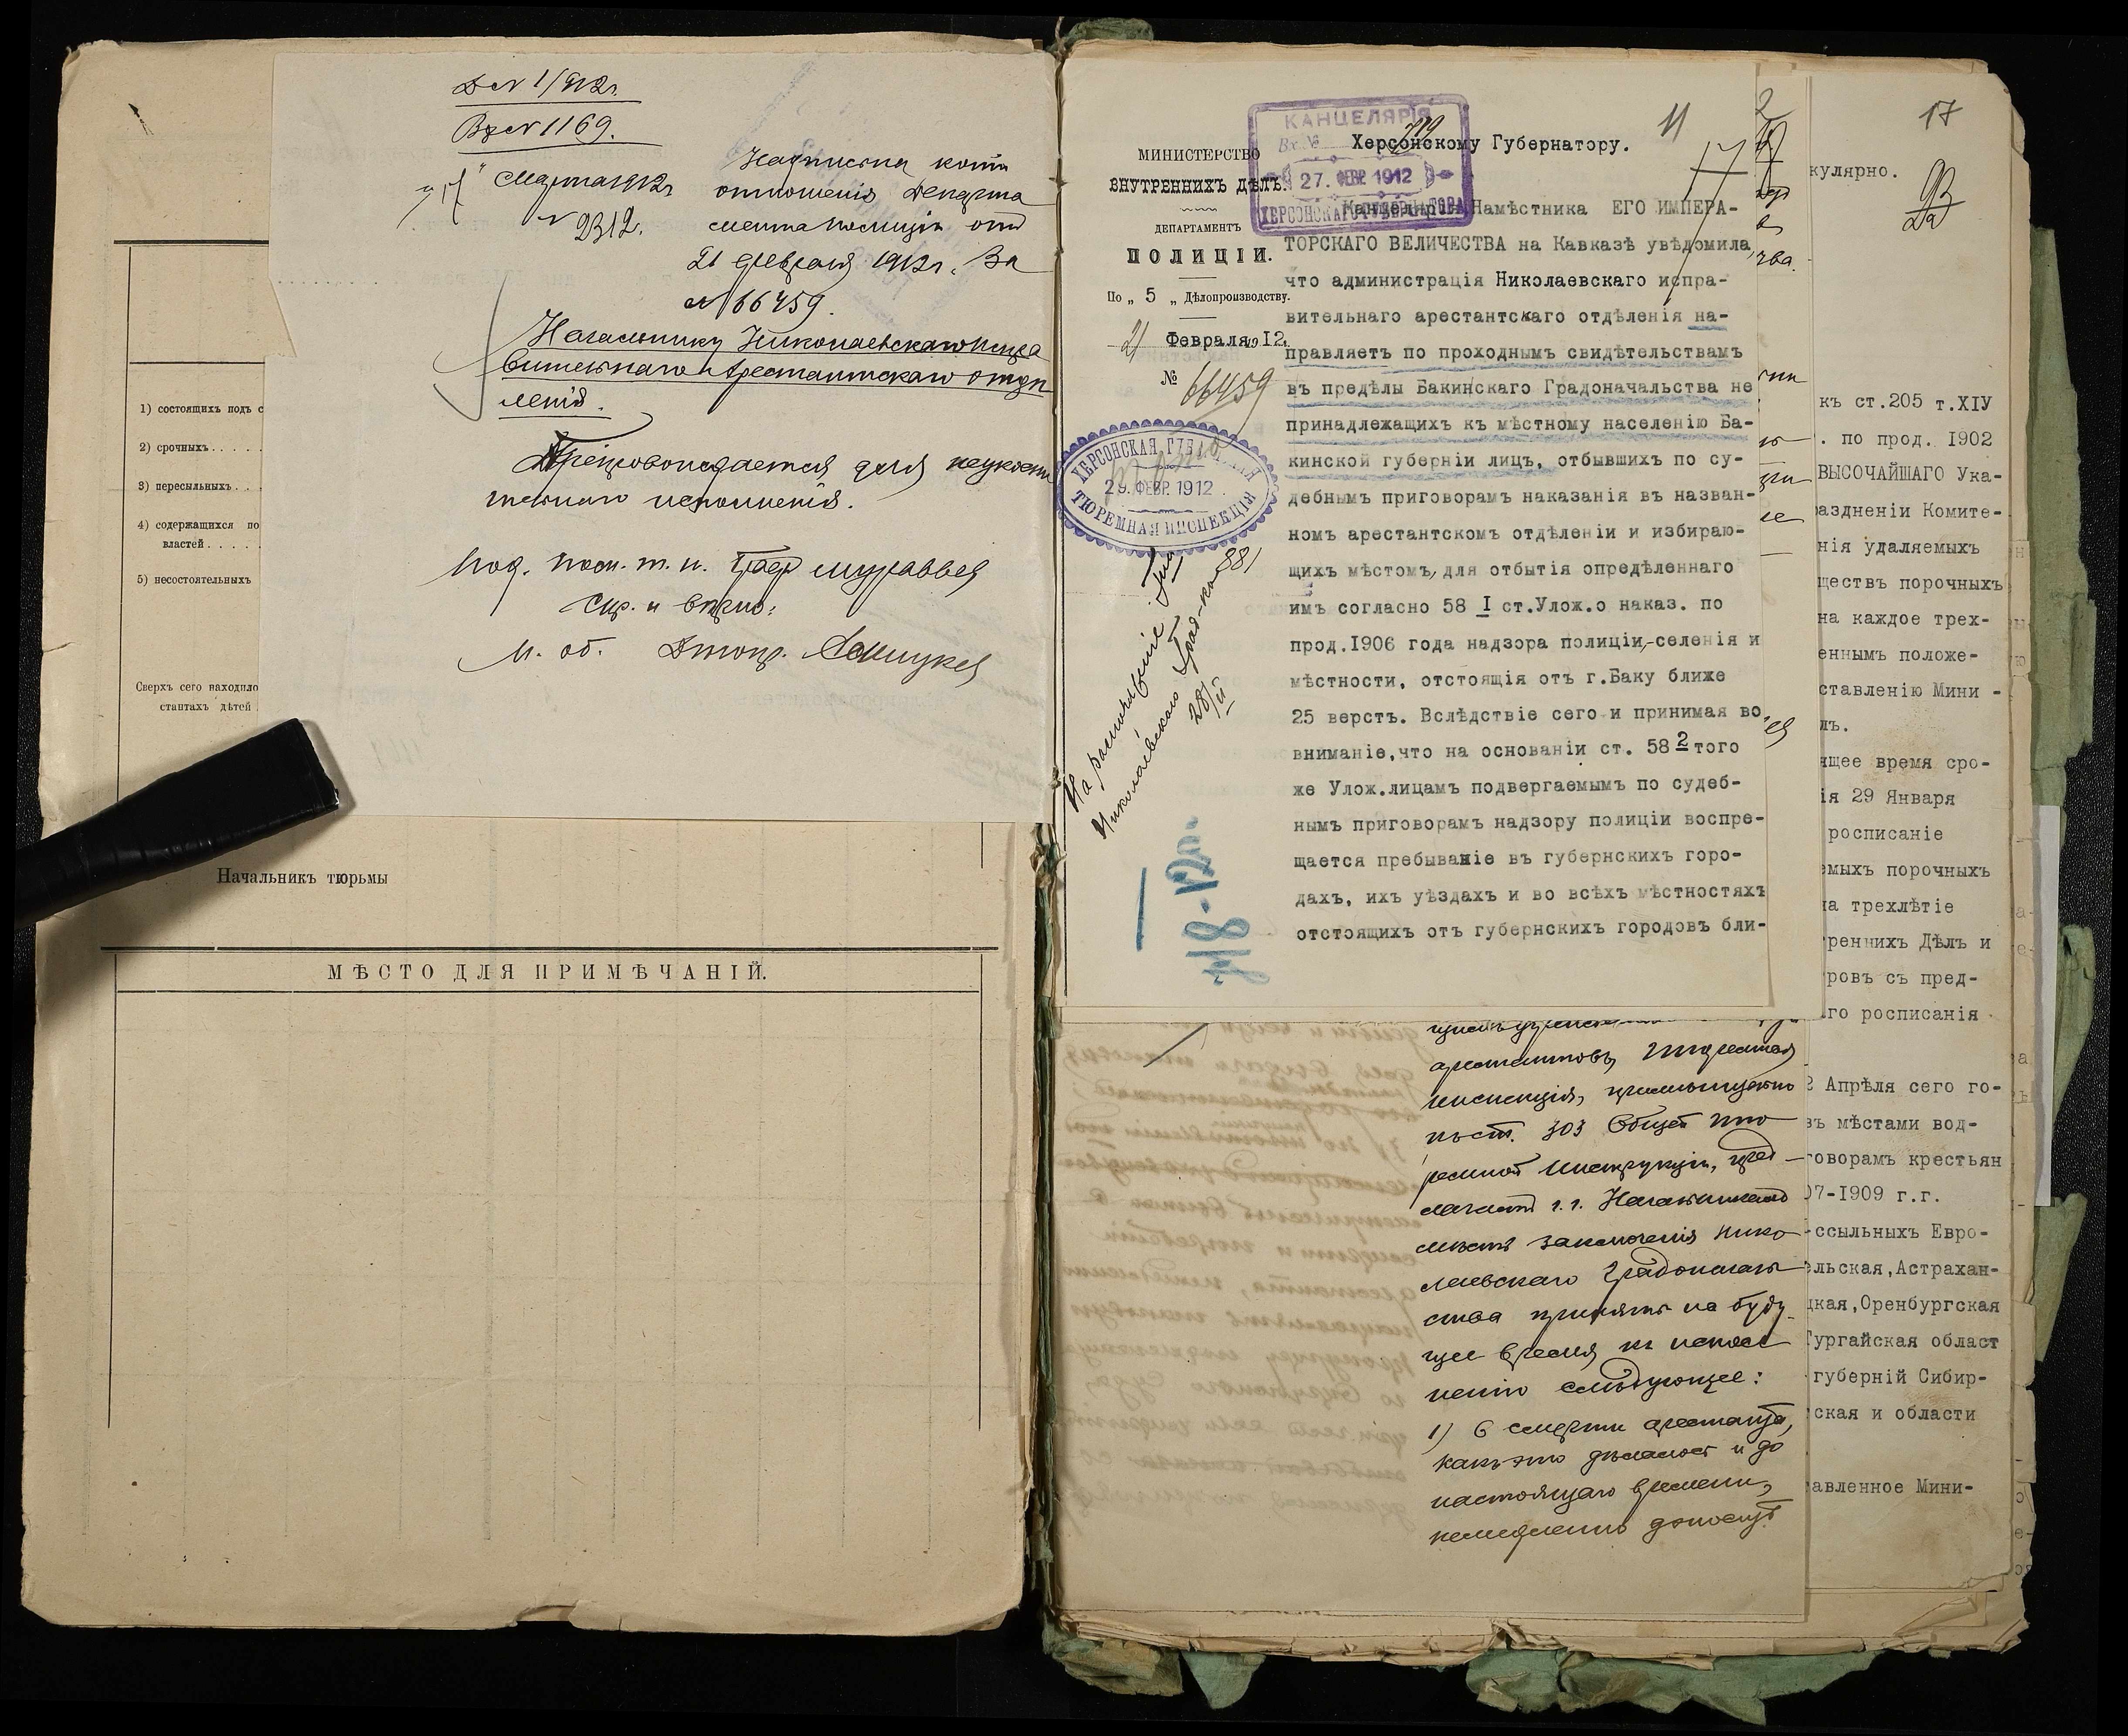 Д№ 1/912г.
Вх№ 1169.
"17" Марта 1912г
№ 2312.
Надпись на копіи
отношенія Департа
мента Полиціи отъ
21 февраля 1912г. за
№ 66459.
Начальнику Николаевскаго Испра
вительнаго Арестантскаго отдѣ
ленія.
Препровождается для неукосни
тельнаго исполненія.
Под.
Скр. и вѣрно:
И. об.
1) состоящихъ подъ с
2) срочныхъ . . . . .
3) пересыльныхъ . . .
4) содержащихся по
властей . . . . .
5) несостоятельныхъ
Сверхъ сего находило
стантахъ дѣтей
Начальникъ тюрьмы
МѢСТО ДЛЯ ПРИМѢЧАНІЙ.
КАНЦЕЛЯРІЯ
Вх. №
719
27. ФЕВР. 1912
ХЕРСОНСКАГО ГУБЕРНАТОРА
11
17
МИНИСТЕРСТВО
ВНУТРЕННИХЪ ДѢЛЪ.
ДЕПАРТАМЕНТЪ
ПОЛИЦІИ.
По „ 5 „ Дѣлопроизводству.
21 Февраля 1912г.
№ 66459
ХЕРСОНСКАЯ ГУБЕРНСКАЯ
29. ФЕВР. 1912
ТЮРЕМНАЯ ИНСПЕКЦІЯ
881
На распоряженіе
Николаевскаго Град-ка
28/II
Херсонскому Губернатору.
Канцелярія Намѣстника ЕГО ИМПЕРА-
ТОРСКАГО ВЕЛИЧЕСТВА на Кавказѣ увѣдомила,
что администрація Николаевскаго испра-
вительнаго арестантскаго отдѣленія на-
правляетъ по проходнымъ свидѣтельствамъ
въ предѣлы Бакинскаго Градоначальства не
принадлежащихъ къ мѣстному населенію Ба-
кинской губерніи лицъ, отбывшихъ по су-
дебнымъ приговорамъ наказанія въ назван-
номъ арестантскомъ отдѣленіи и избираю-
щихъ мѣстомъ, для отбытія опредѣленнаго
имъ согласно 58 I ст.Улож.о наказ. по
прод.1906 года надзора полиціи,-селенія и
мѣстности, отстоящія отъ г.Баку ближе
25 верстъ. Вслѣдствіе сего и принимая во
вниманіе,что на основаніи ст. 58 2 того
же Улож.лицамъ подвергаемымъ по судеб-
нымъ приговорамъ надзору полиціи воспре-
щается пребываніе въ губернскихъ горо-
дахъ, ихъ уѣздахъ и во всѣхъ мѣстностяхъ
отстоящихъ отъ губернскихъ городовъ бли-
арестантовъ, Тюремная
инспекція, применительно
къ ст. 303 Общей Тю
ремной Инструкціи, пред-
лагаетъ г.г. Начальникамъ
мѣстъ заключенія Нико
лаевскаго Градоначаль
ства принять на буду
щее время къ испол
ненію слѣдующее:
1) О смерти арестанта,
какъ это дѣлалось и до
настоящаго времени,
немедленно доносить
17
кулярно.
къ ст.205 т.XIУ
. по прод. 1902
ВЫСОЧАЙШАГО Ука-
аздненіи Комите-
нія удаляемыхъ
ществъ порочныхъ
на каждое трех-
еннымъ положе-
ставленію Мини -
лъ.
ящее время сро-
ія 29 Января
росписаніе
емыхъ порочныхъ
на трехлѣтіе
реннихъ Дѣлъ и
ровъ съ пред-
го росписанія
2 Апрѣля сего го-
въ мѣстами вод-
говорамъ крестьян
07-1909 г.г.
-ссыльныхъ Евро-
ельская,Астрахан-
цкая,Оренбургская
Тургайская област
губерній Сибир-
ская и области
авленное Мини-